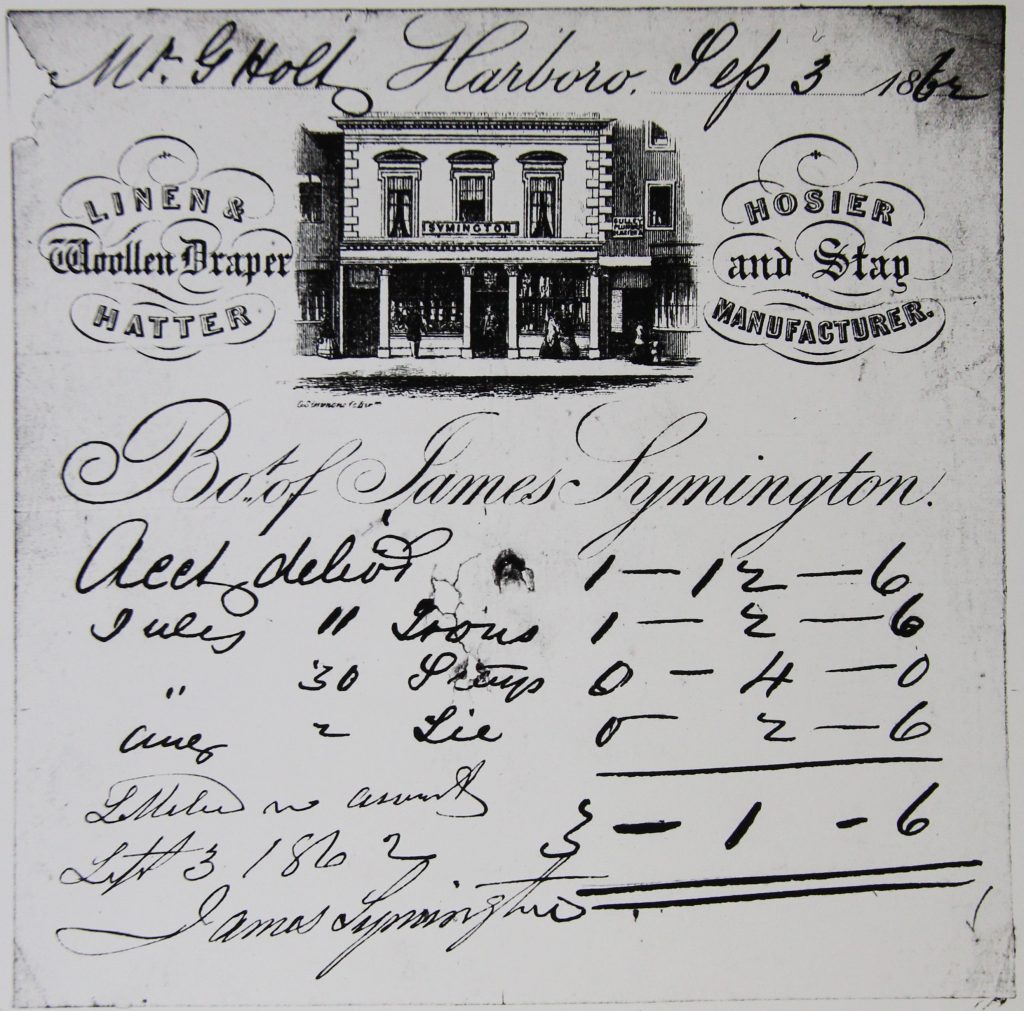 Mr. G Holt Harboro. Sep 3 1862
LINEN &
Woollen Draper
HATTER
SYMINGTON
HOSIER
and Stay
MANUFACTURER.
Bot. of James Symington.
Acct delivd 1 — 12 — 6
July 11 1 — 2 — 6
" 30 0 — 4 — 0
Aug 2 Tie 0 — 2 — 6
3 — 1 - 6
Settled
Sept 3 1862
James Symington